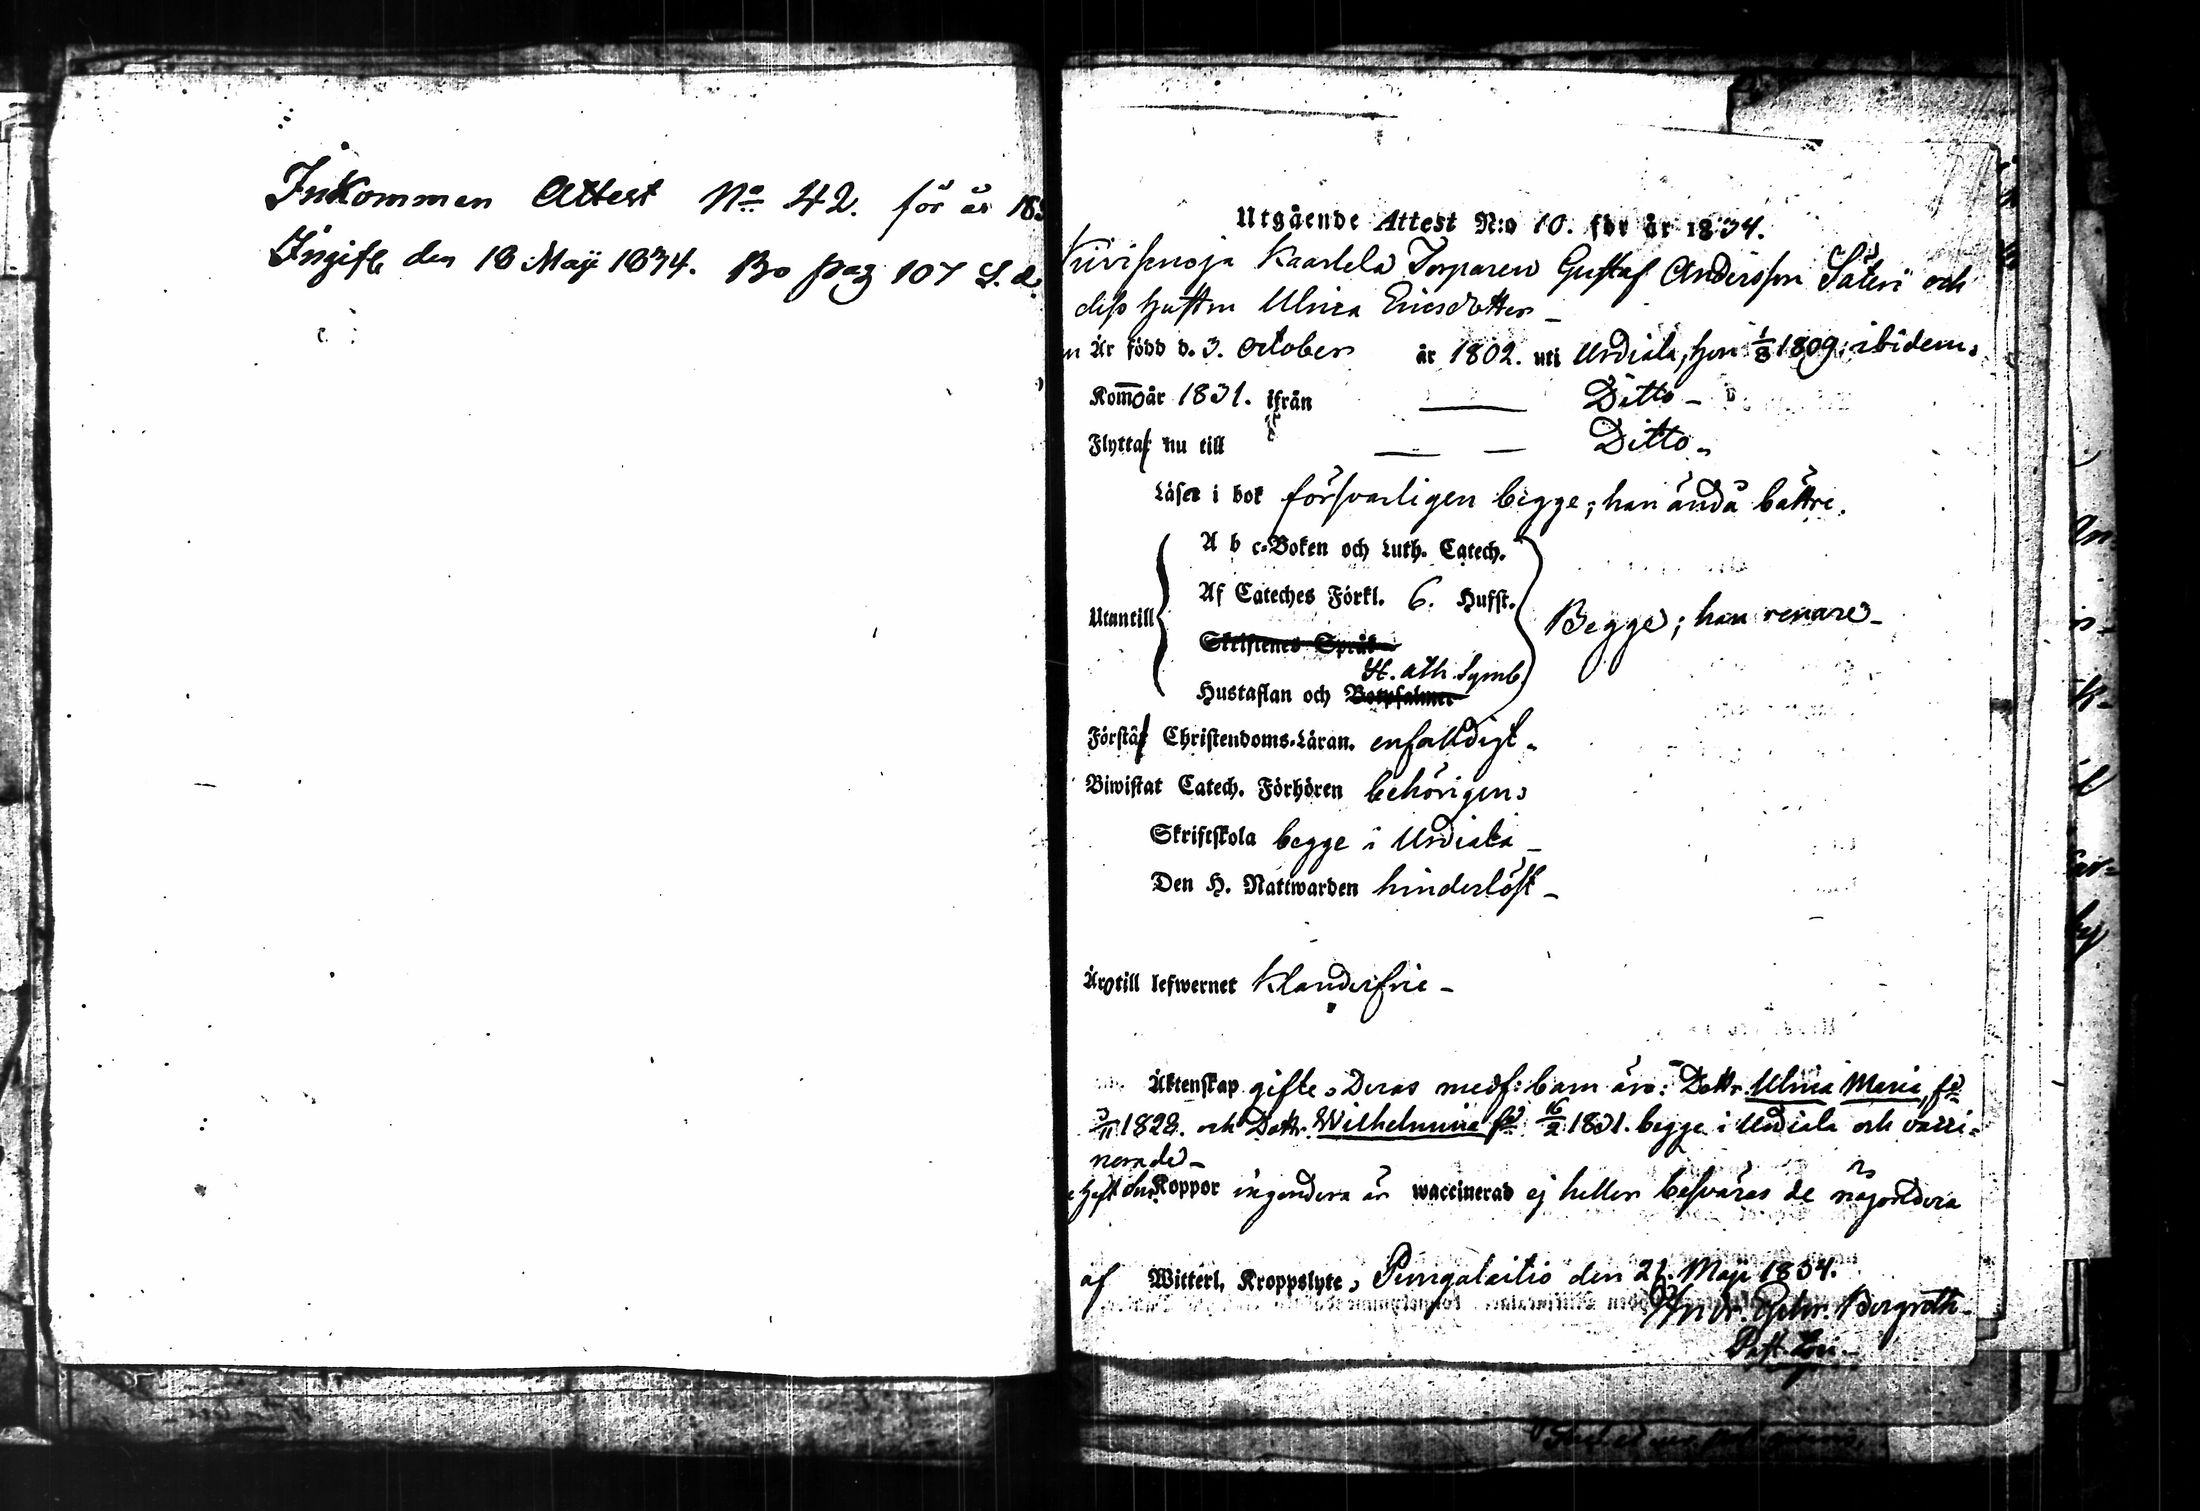 Inkommen Attest No 42. för år 183
Ingift den 18 Maji 1834. Bo pag 107 L. d.
Utgående Attest N:o 10. för år 1834.
Kivisenoja Kaarlela Torparen Gustaf Andersson Säteri och
dess hustru Ulrica Ericsdotter
Är född d. 3. October år 1802. uti Urdiala, hon 1/8 1809. ibidem.
Kommo år 1831. ifrån — Ditto
Flytta nu till — — Ditto
Läser i bok försvarligen begge; han ändå bättre.
A b c-Boken och Luth. Catech.
Af Cateches Förkl. 6. Hufst.
Utantill
Begge; han renare
Skriftenes Språk
H. Ath. Symb.
Hustaflan och Botpsalmer
Förstå Christendoms-Läran. enfalldigt
Biwistat Catech. Förhören behörigen
Skriftskola begge i Urdiala
Den H. Nattwarden hinderlöst
Äro till lefwernet klanderfrie
Äktenskap gifte. Deras medf: barn äro: Dottr. Ulrica Maria, fd
3/11 1828. och Dottr. Wilhelmina fd 16/2 1831. begge i Urdiala och vacci-
nerade
Haft Koppor ingendera är waccinerad ej heller besväras de någondera
af Witterl. Kroppslyte, Pungalaitio den 21. Maji 1834.
Bergroth
Past.